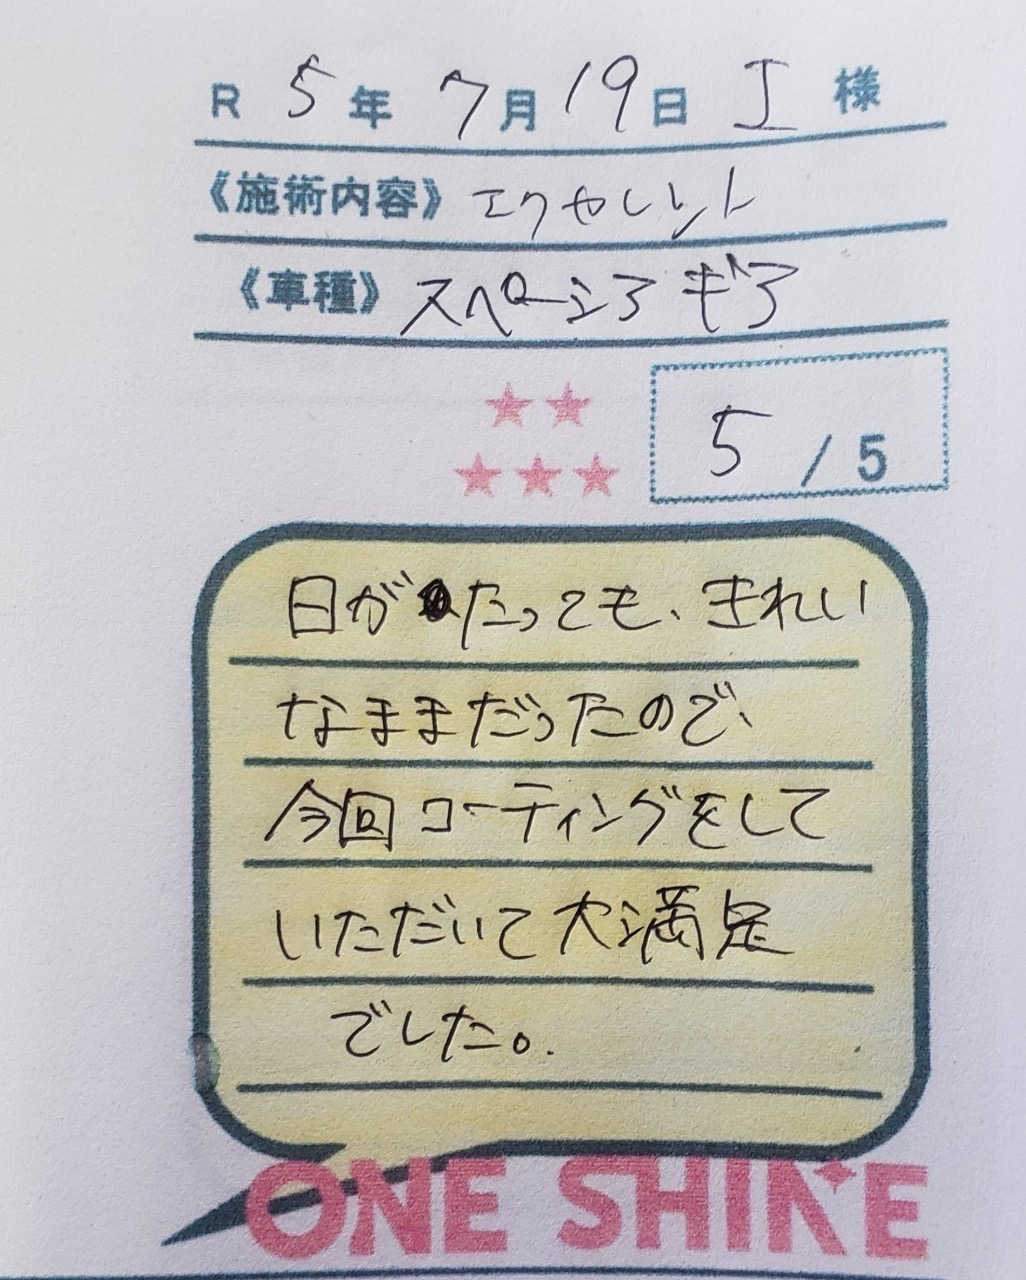 R 5年 7月 19日 I 様
《施術内容》 エクセレント
《車種》 スペーシアギア
5 / 5
日がたっても、きれい
なままだったので、
今回コーティングをして
いただいて大満足
でした。
ONE SHINE